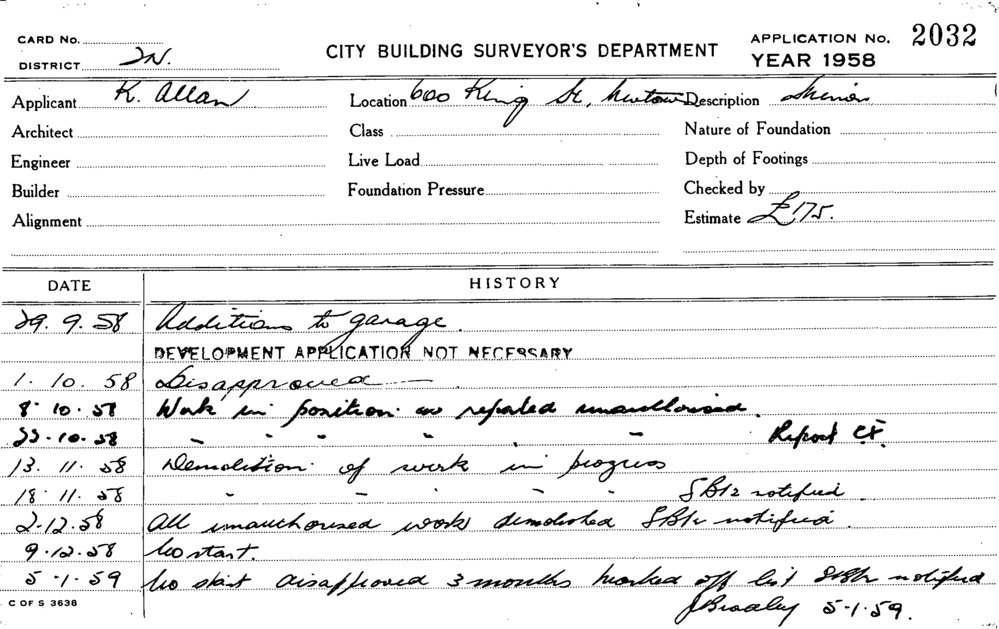 CARD No.
DISTRICT 2N.
CITY BUILDING SURVEYOR'S DEPARTMENT
APPLICATION No. 2032
YEAR 1958
Applicant K. Allan Location 600 King St, Newtown Description
Architect Class Nature of Foundation
Engineer Live Load Depth of Footings
Builder Foundation Pressure Checked by
Alignment Estimate £175.
DATE HISTORY
29. 9. 58 Additions to garage.
DEVELOPMENT APPLICATION NOT NECESSARY
1. 10. 58 Disapproved
8. 10. 58 Work in position as reported unauthorised.
23. 10. 58 " " " " " Report
13. 11. 58 Demolition of work in progress
18. 11. 58 " " " " " notified.
2.12.58 All unauthorised work demolished notified.
9.12.58 No start.
5.1.59 No start disapproved 3 months marked off list notified
J Bradley 5-1-59.
C OF S 3638